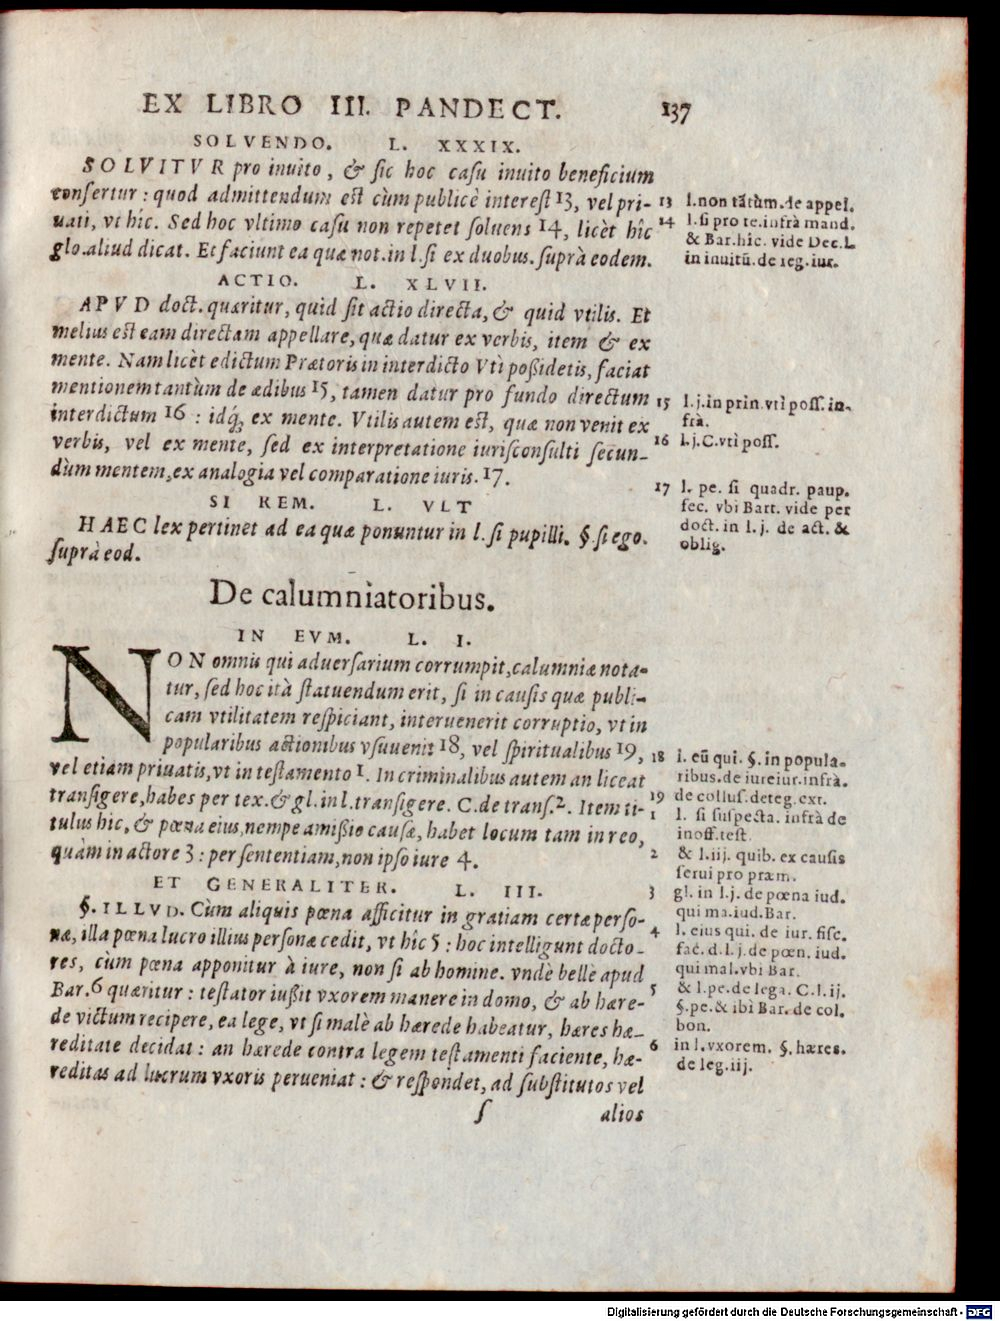 EX LIBRO III. PANDECT. 137
SOLVENDO. L. XXXIX.
SOLVITVR pro inuito, & sic hoc casu inuito beneficium
consertur: quod admittendum est cùm publicè interest 13, vel pri-
uati, vt hîc. Sed hoc vltimo casu non repetet soluens 14, licèt hîc
glo. aliud dicat. Et faciunt ea quæ not. in l. si ex duobus. suprà eodem.
ACTIO. L. XLVII.
APVD doct. quæritur, quid sit actio directa, & quid vtilis. Et
melius est eam directam appellare, quæ datur ex verbis, item & ex
mente. Nam licèt edictum Prætoris in interdicto Vtì poßidetis, faciat
mentionem tantùm de ædibus 15, tamen datur pro fundo directum
interdictum 16 : idq́; ex mente. Vtilis autem est, quæ non venit ex
verbis, vel ex mente, sed ex interpretatione iurisconsulti secun-
dùm mentem, ex analogia vel comparatione iuris. 17.
SI REM. L. VLT
HAEC lex pertinet ad ea quæ ponuntur in l. si pupilli. §. si ego.
suprà eod.
De calumniatoribus.
IN EVM. L. I.
NON omnis qui aduersarium corrumpit, calumniæ nota-
tur, sed hoc ità statuendum erit, si in causis quæ publi-
cam vtilitatem respiciant, interuenerit corruptio, vt in
popularibus actionibus vsuuenit 18, vel spiritualibus 19,
vel etiam priuatis, vt in testamento 1. In criminalibus autem an liceat
transigere, habes per tex. & gl. in l. transigere. C. de trans. 2. Item ti-
tulus hic, & pœna eius, nempe amißio causæ, habet locum tam in reo,
quàm in actore 3 : per sententiam, non ipso iure 4.
ET GENERALITER. L. III.
§. ILLVD. Cùm aliquis pœna afficitur in gratiam certæ perso-
næ, illa pœna lucro illius personæ cedit, vt hîc 5 : hoc intelligunt docto-
res, cùm pœna apponitur à iure, non si ab homine. vndè bellè apud
Bar. 6 quæritur : testator iußit vxorem manere in domo, & ab hære-
de victum recipere, ea lege, vt si malè ab hærede habeatur, hæres hæ-
reditate decidat : an hærede contra legem testamenti faciente, hæ-
reditas ad lucrum vxoris perueniat : & respondet, ad substitutos vel
s alios
13 l. non tãtùm. de appel.
14 l. si pro te. infrà mand.
& Bar. hîc. vide Dec. l.
in inuitũ. de reg. iur.
15 l. j. in prin. vtì poss. in-
frà.
16 l. j. C. vtì poss.
17 l. pe. si quadr. paup.
fec. vbi Bart. vide per
doct. in l. j. de act. &
oblig.
18 l. eũ qui. §. in popula-
ribus. de iureiur. infrà.
19 de collus. deteg. ext.
1 l. si suspecta. infrà de
inoff. test.
2 & l. iij. quib. ex causis
serui pro præm.
3 gl. in l. j. de pœna iud.
qui ma. iud. Bar.
4 l. eius qui. de iur. fisc.
fac. d. l. j. de pœn. iud.
qui mal. vbi Bar.
5 & l. pe. de lega. C. l. ij.
§. pe. & ibi Bar. de col.
bon.
6 in l. vxorem. §. hæres.
de leg. iij.
Digitalisierung gefördert durch die Deutsche Forschungsgemeinschaft - DFG